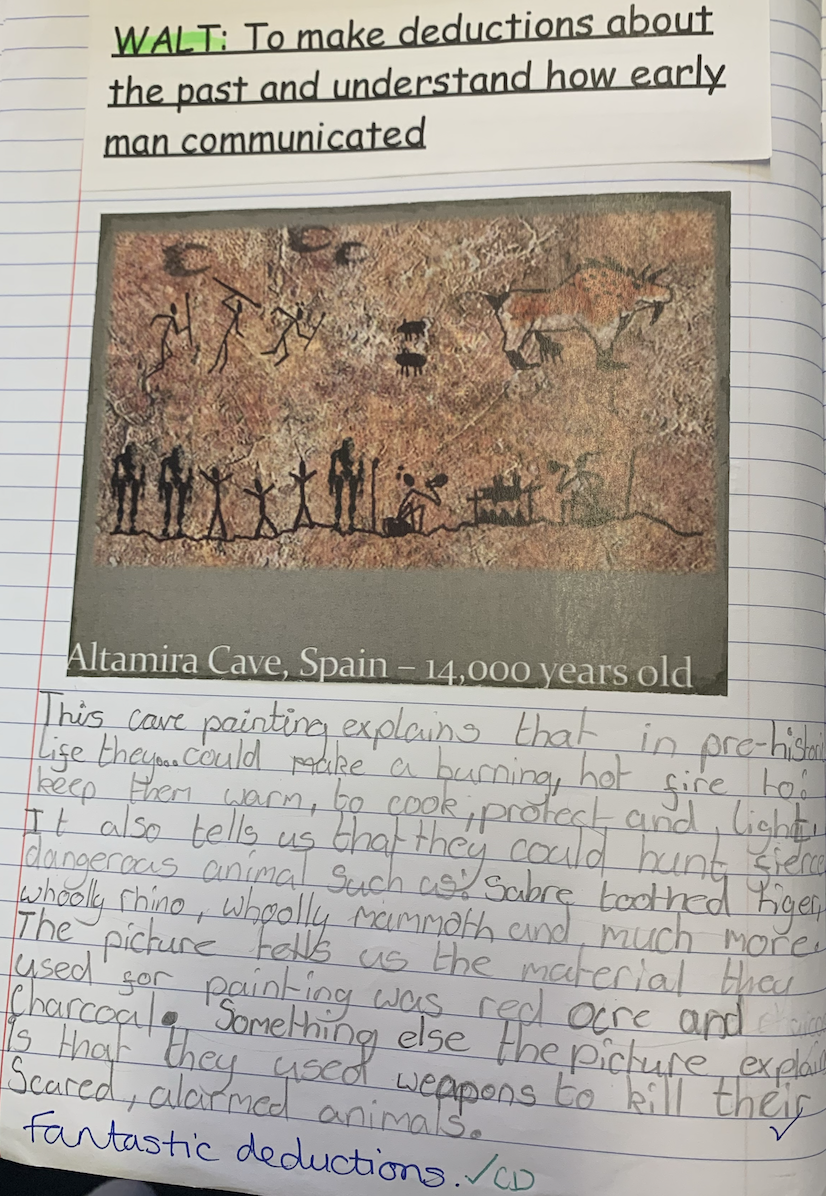 WALT: To make deductions about
the past and understand how early
man communicated
Altamira Cave, Spain – 14,000 years old
This cave painting explains that in pre-histori
life they... could make a burning, hot fire to:
keep them warm, to cook, protect and, light.
It also tells us that they could hunt fierce
dangeroas animal such as: Sabre toothed tiger,
whoolly rhino, whoolly mammoth and, much more.
The picture tells us the material they
used for painting was red ocre and
charcoal. Something else the picture explain
is that they used weapons to kill their
Scared, alarmed animals.
fantastic deductions. ✓CD